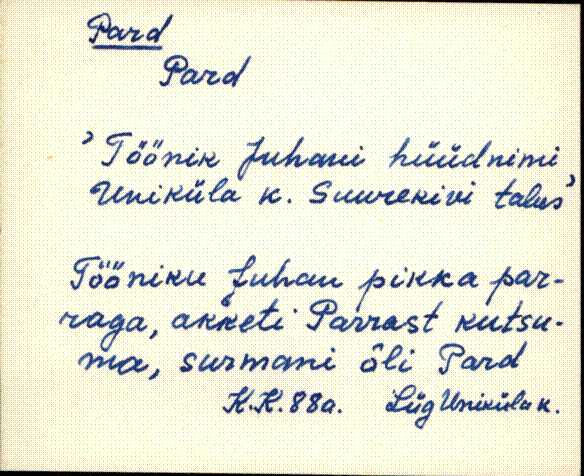 Pard
Pard
'Töönik Juhani hüüdnimi
Uniküla k. Suurekivi talus'
Tööniku Juhan pikka par-
raga, akketi Parrast kutsu-
ma, surmani õli Pard
K.K. 88a. Lüg Uniküla k.